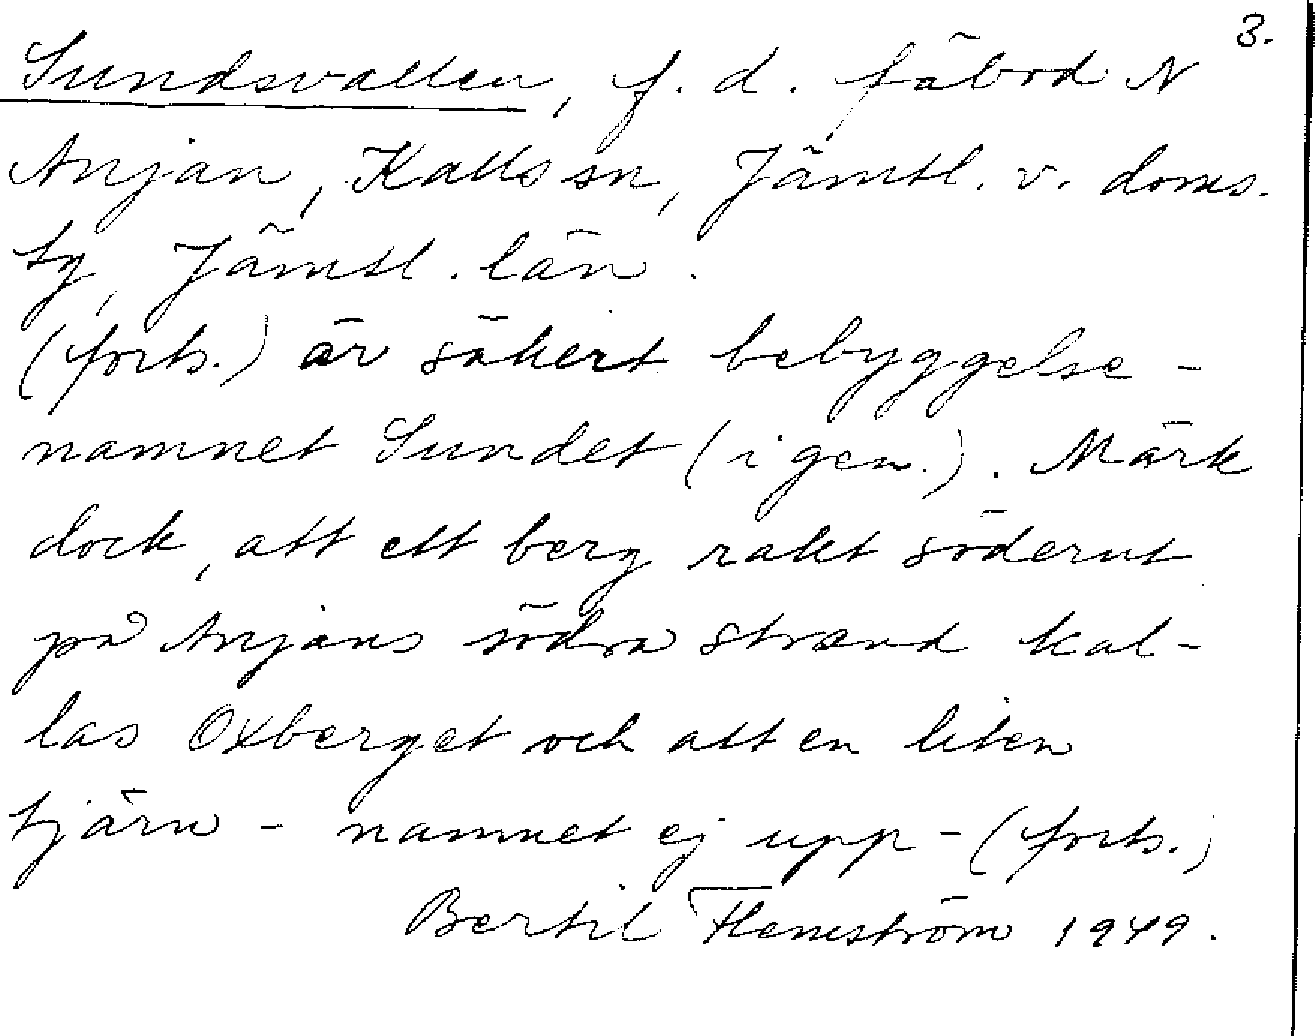 3.
Sundsvallen, f. d. fäbod N
Anjan, Kalls sn, Jämtl. v. doms.
tg, Jämtl. län.
(forts.) är säkert bebyggelse-
namnet Sundet (igen.). Märk
dock, att ett berg rakt söderut
på Anjans södra strand kal-
las Oxberget och att en liten
tjärn - namnet ej upp- (forts.)
Bertil Flemström 1949.